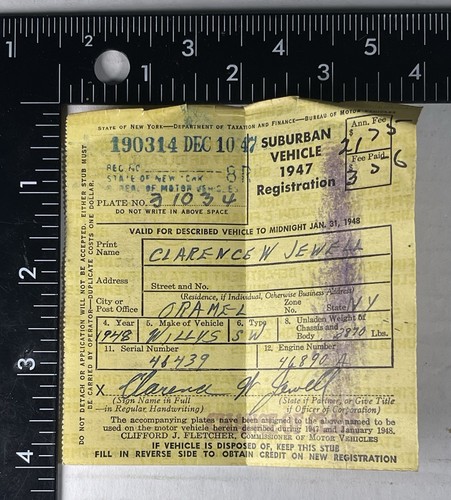 STATE OF NEW YORK—DEPARTMENT OF TAXATION AND FINANCE—BUREAU OF MOTOR VEHICLES
190314 DEC 10 47
SUBURBAN
VEHICLE
1947
Registration
Ann. Fee
$
Fee Paid
$
REG. NO. 8R
STATE OF NEW YORK
MOTOR VEHICLE
PLATE NO. 31034
DO NOT WRITE IN ABOVE SPACE
VALID FOR DESCRIBED VEHICLE TO MIDNIGHT JAN. 31, 1948
Print Name CLARENCE W JEWELL
Address
Street and No.
(Residence, if Individual, Otherwise Business Address)
City or Post Office ORAMEL Zone No. State NY
4. Year 1948
5. Make of Vehicle WILLYS
6. Type SW
8. Unladen Weight of Chassis and Body 2870 Lbs.
11. Serial Number 46439
12. Engine Number 46890 A
X Clarence W Jewell
(Sign Name in Full in Regular Handwriting)
(State if Partner, or Give Title if Officer of Corporation)
The accompanying plates have been assigned to the above named to be
used on the motor vehicle herein described during 1947 and January 1948.
CLIFFORD J. FLETCHER, COMMISSIONER OF MOTOR VEHICLES
IF VEHICLE IS DISPOSED OF, KEEP THIS STUB
FILL IN REVERSE SIDE TO OBTAIN CREDIT ON NEW REGISTRATION
DO NOT DETACH OR APPLICATION WILL NOT BE ACCEPTED. EITHER STUB MUST
BE CARRIED BY OPERATOR—DUPLICATE COSTS ONE DOLLAR.
1 2 3 4 5
1 2 3 4
1 2
3 4